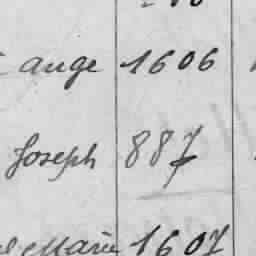 ange 1606
Joseph 887
Marie 1607